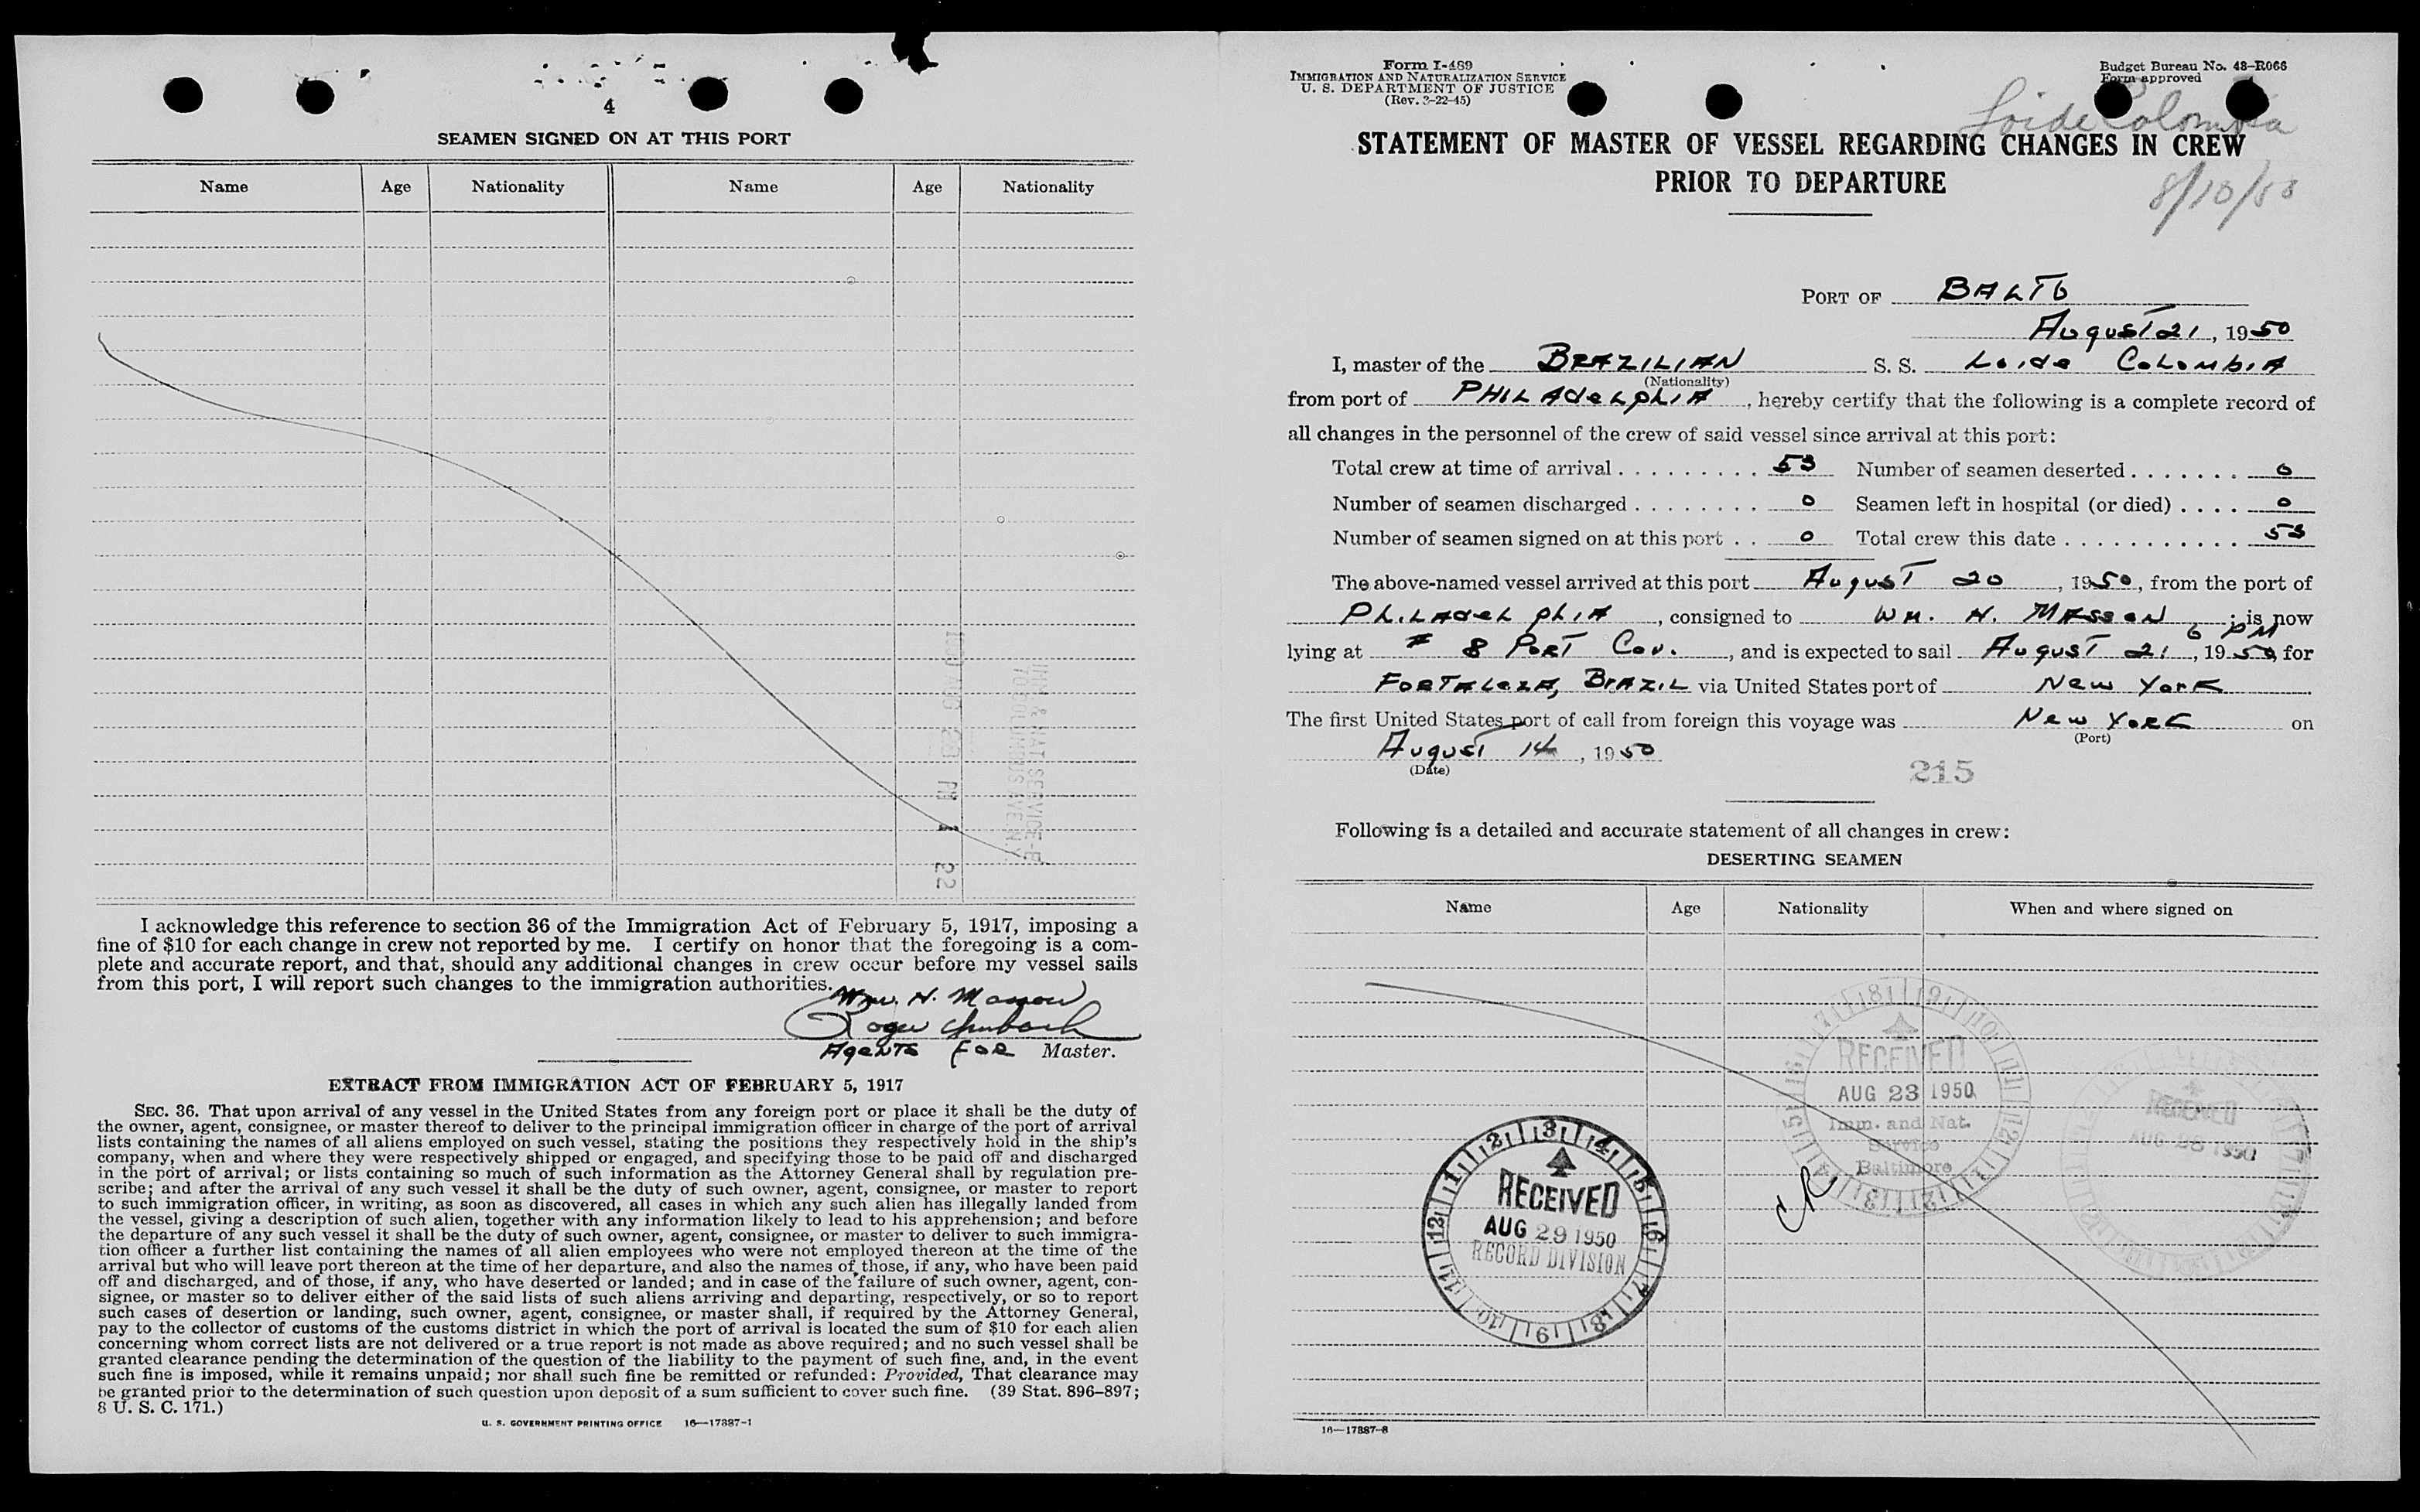 4
SEAMEN SIGNED ON AT THIS PORT
Name Age Nationality Name Age Nationality
I acknowledge this reference to section 36 of the Immigration Act of February 5, 1917, imposing a
fine of $10 for each change in crew not reported by me. I certify on honor that the foregoing is a com-
plete and accurate report, and that, should any additional changes in crew occur before my vessel sails
from this port, I will report such changes to the immigration authorities.
Wm. H. Masson
Roger
Agents for Master.
EXTRACT FROM IMMIGRATION ACT OF FEBRUARY 5, 1917
SEC. 36. That upon arrival of any vessel in the United States from any foreign port or place it shall be the duty of
the owner, agent, consignee, or master thereof to deliver to the principal immigration officer in charge of the port of arrival
lists containing the names of all aliens employed on such vessel, stating the positions they respectively hold in the ship's
company, when and where they were respectively shipped or engaged, and specifying those to be paid off and discharged
in the port of arrival; or lists containing so much of such information as the Attorney General shall by regulation pre-
scribe; and after the arrival of any such vessel it shall be the duty of such owner, agent, consignee, or master to report
to such immigration officer, in writing, as soon as discovered, all cases in which any such alien has illegally landed from
the vessel, giving a description of such alien, together with any information likely to lead to his apprehension; and before
the departure of any such vessel it shall be the duty of such owner, agent, consignee, or master to deliver to such immigra-
tion officer a further list containing the names of all alien employees who were not employed thereon at the time of the
arrival but who will leave port thereon at the time of her departure, and also the names of those, if any, who have been paid
off and discharged, and of those, if any, who have deserted or landed; and in case of the failure of such owner, agent, con-
signee, or master so to deliver either of the said lists of such aliens arriving and departing, respectively, or so to report
such cases of desertion or landing, such owner, agent, consignee, or master shall, if required by the Attorney General,
pay to the collector of customs of the customs district in which the port of arrival is located the sum of $10 for each alien
concerning whom correct lists are not delivered or a true report is not made as above required; and no such vessel shall be
granted clearance pending the determination of the question of the liability to the payment of such fine, and, in the event
such fine is imposed, while it remains unpaid; nor shall such fine be remitted or refunded: Provided, That clearance may
be granted prior to the determination of such question upon deposit of a sum sufficient to cover such fine. (39 Stat. 896–897;
8 U. S. C. 171.)
U. S. GOVERNMENT PRINTING OFFICE 16—17887-1
Form I-489
IMMIGRATION AND NATURALIZATION SERVICE
U. S. DEPARTMENT OF JUSTICE
(Rev. 3-22-45)
Budget Bureau No. 43–R066
Form approved
Loide Colombia
STATEMENT OF MASTER OF VESSEL REGARDING CHANGES IN CREW
PRIOR TO DEPARTURE
8/10/50
PORT OF BALTO
August 21, 1950
I, master of the BRAZILIAN S. S. Loide Colombia
(Nationality)
from port of PHILAdeLphIA, hereby certify that the following is a complete record of
all changes in the personnel of the crew of said vessel since arrival at this port:
Total crew at time of arrival . . . . . . . . . 53 Number of seamen deserted . . . . . . . 0
Number of seamen discharged . . . . . . . . 0 Seamen left in hospital (or died) . . . . 0
Number of seamen signed on at this port . . 0 Total crew this date . . . . . . . . . . . 53
The above-named vessel arrived at this port August 20, 1950, from the port of
Philadelphia, consigned to Wm. H. Masson; is now
6 PM
lying at # 8 Port Cov., and is expected to sail August 21, 1950, for
Fortaleza, Brazil via United States port of New York
The first United States port of call from foreign this voyage was New York on
(Port)
August 14, 1950
(Date)
215
Following is a detailed and accurate statement of all changes in crew:
DESERTING SEAMEN
Name Age Nationality When and where signed on
RECEIVED
AUG 23 1950
Imm. and Nat.
Service
Baltimore
RECEIVED
AUG 28 1950
RECEIVED
AUG 29 1950
RECORD DIVISION
CR
16—17887-8